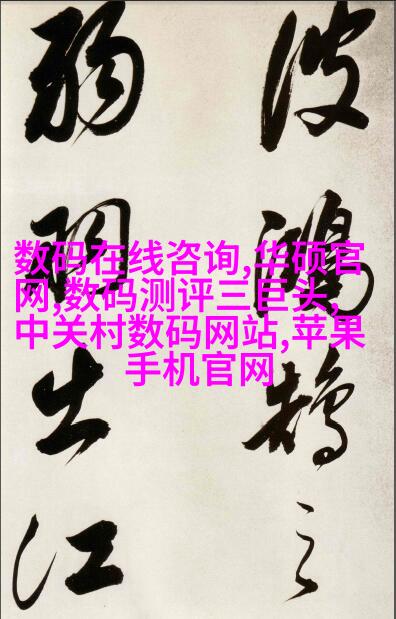 鴻鵠之
弱出江
数码在线咨询,华硕官
网,数码测评三巨头,
中关村数码网站,苹果
手机官网